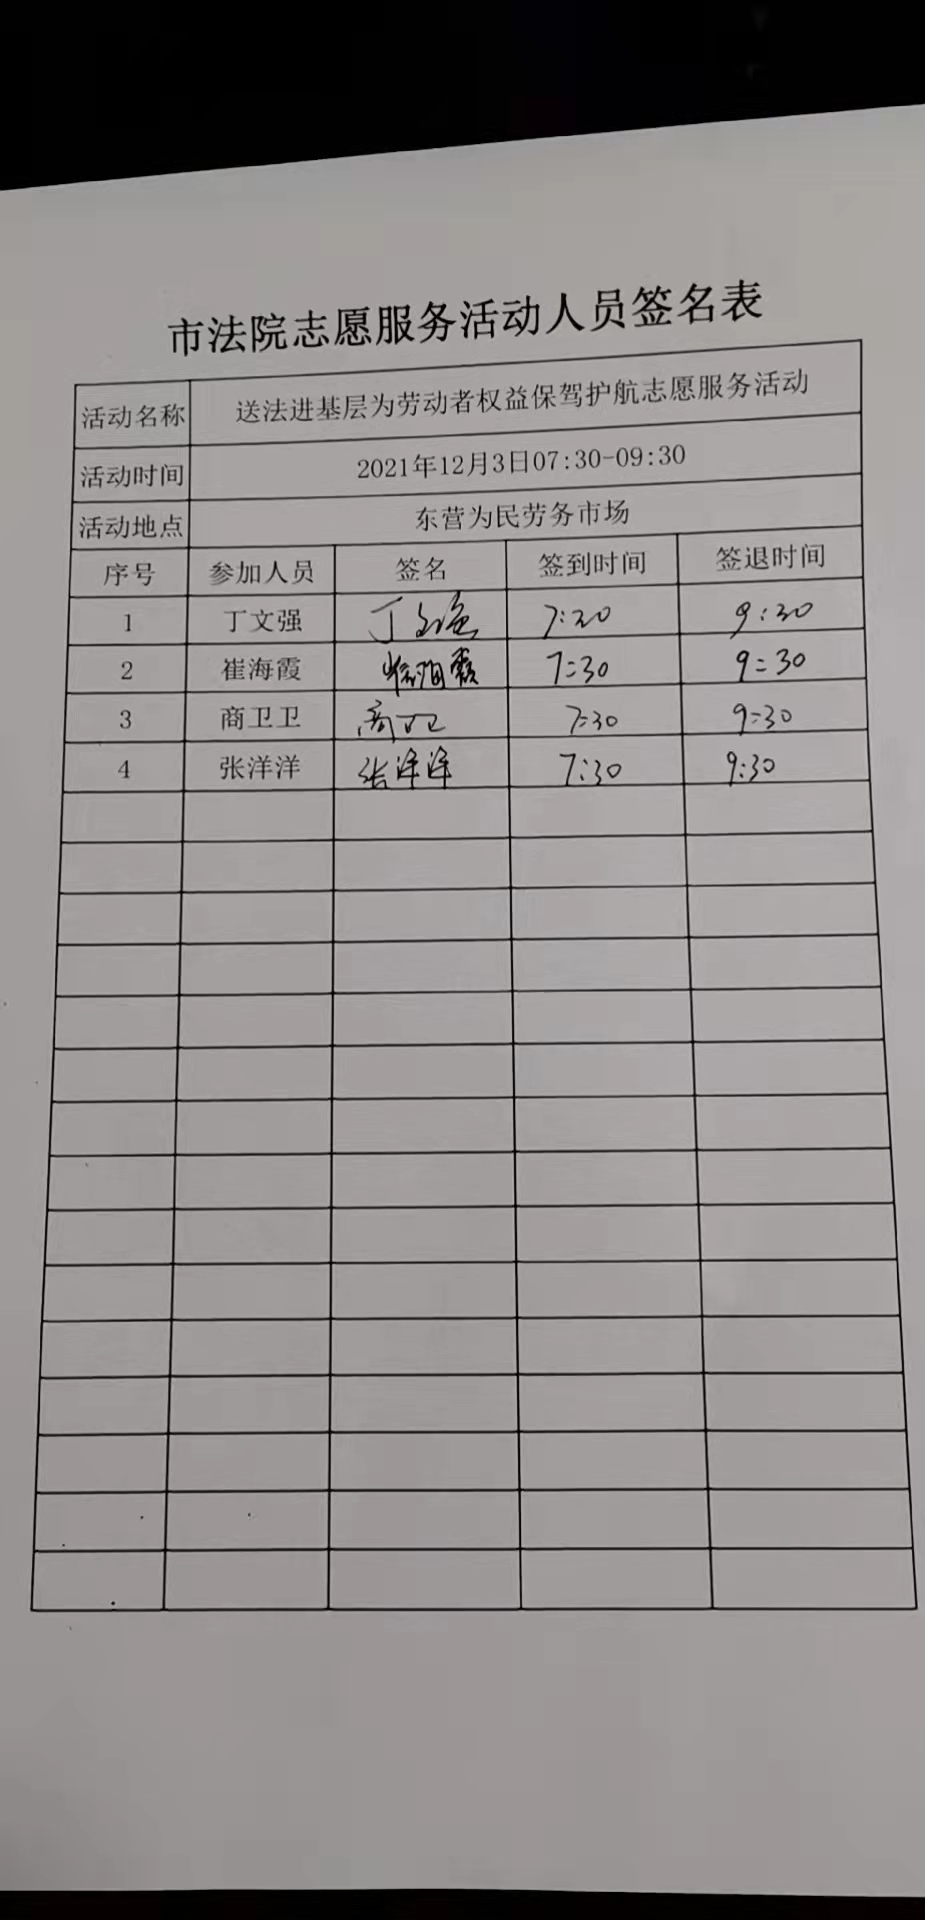 市法院志愿服务活动人员签名表
活动名称 送法进基层为劳动者权益保驾护航志愿服务活动
活动时间 2021年12月3日07:30-09:30
活动地点 东营为民劳务市场
序号 参加人员 签名 签到时间 签退时间
1 丁文强 丁文强 7:30 9:30
2 崔海霞 崔海霞 7:30 9:30
3 商卫卫 商卫卫 7:30 9:30
4 张洋洋 张洋洋 7:30 9:30